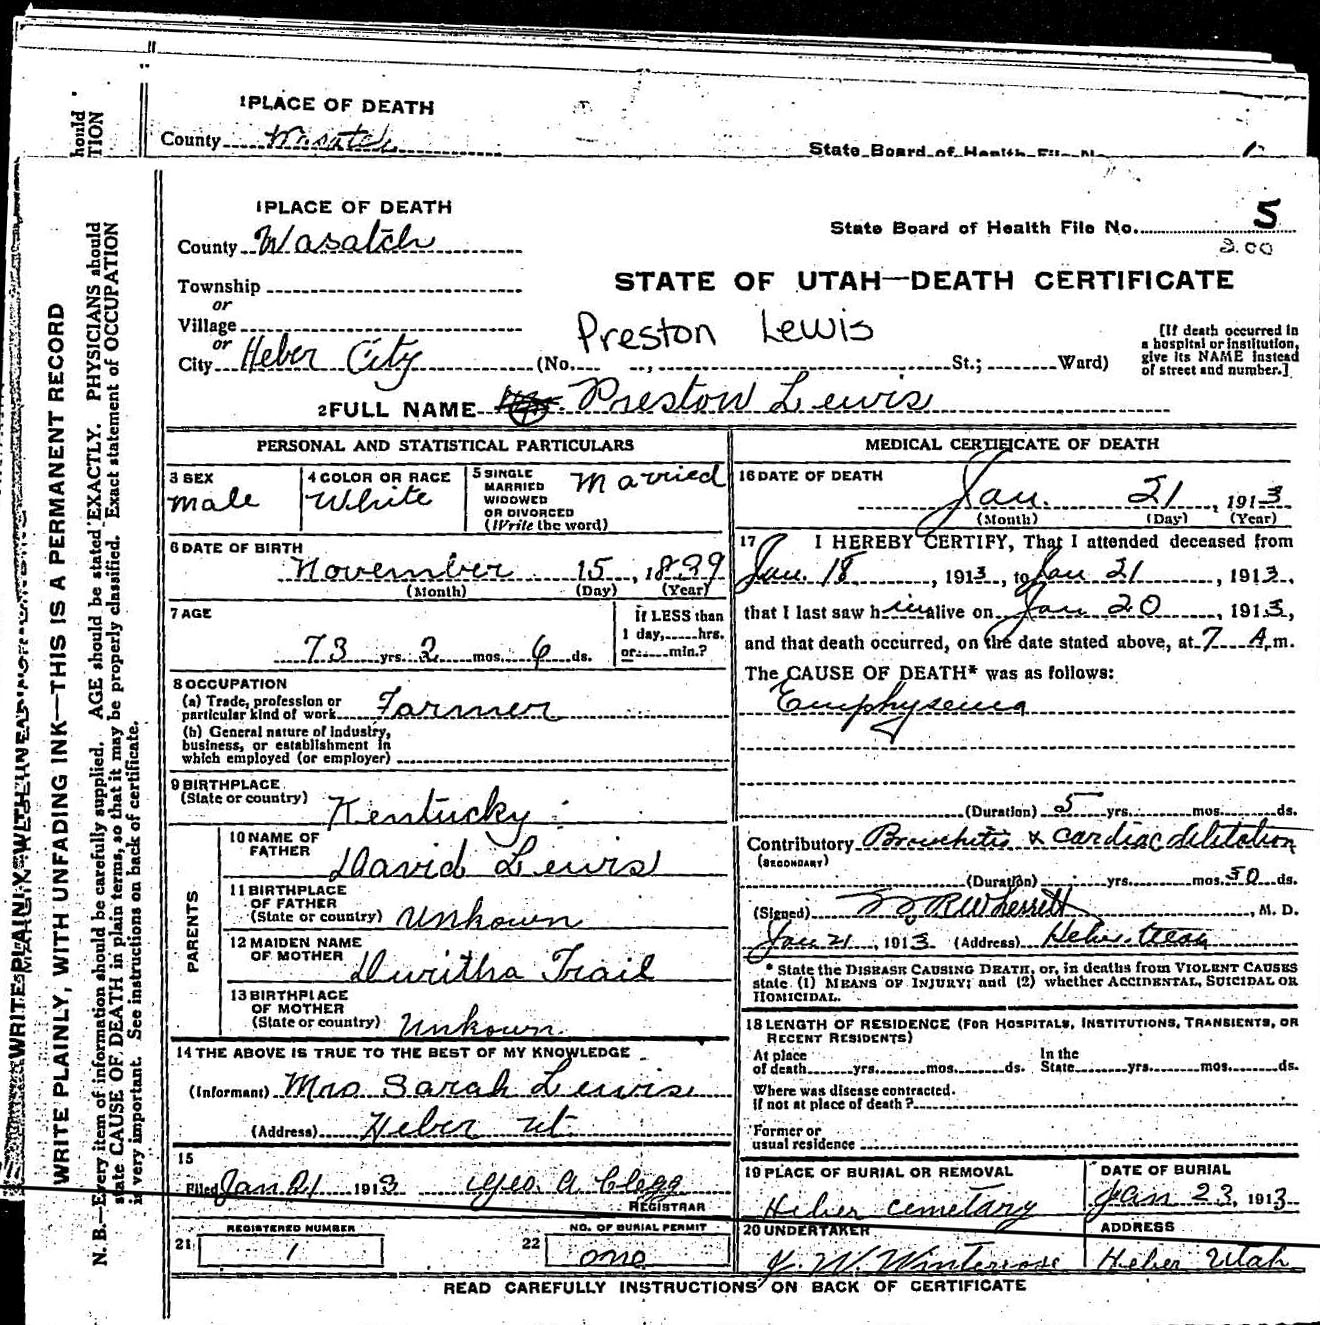 1 PLACE OF DEATH
County Wasatch
State Board of Health File No.
hould
TION
1 PLACE OF DEATH
County Wasatch
State Board of Health File No. 5
3.00
STATE OF UTAH—DEATH CERTIFICATE
Township
or
Village
or
City Heber City (No. , St.; Ward)
Preston Lewis
[If death occurred in
a hospital or institution,
give its NAME instead
of street and number.]
2 FULL NAME Preston Lewis
PERSONAL AND STATISTICAL PARTICULARS
3 SEX
male
4 COLOR OR RACE
White
5 SINGLE
MARRIED
WIDOWED
OR DIVORCED
(Write the word)
Married
6 DATE OF BIRTH
November 15, 1839
(Month) (Day) (Year)
7 AGE
73 yrs. 2 mos. 6 ds.
If LESS than
1 day, hrs.
or min.?
8 OCCUPATION
(a) Trade, profession or
particular kind of work Farmer
(b) General nature of industry,
business, or establishment in
which employed (or employer)
9 BIRTHPLACE
(State or country) Kentucky
PARENTS
10 NAME OF
FATHER David Lewis
11 BIRTHPLACE
OF FATHER
(State or country) Unkown
12 MAIDEN NAME
OF MOTHER Duritha Trail
13 BIRTHPLACE
OF MOTHER
(State or country) Unkown
14 THE ABOVE IS TRUE TO THE BEST OF MY KNOWLEDGE
(Informant) Mrs Sarah Lewis
(Address) Heber Ut.
15
Filed Jan 21 1913 Geo. A. Clegg
REGISTRAR
REGISTERED NUMBER
21 1
NO. OF BURIAL PERMIT
22 one
MEDICAL CERTIFICATE OF DEATH
16 DATE OF DEATH
Jan. 21, 1913
(Month) (Day) (Year)
17 I HEREBY CERTIFY, That I attended deceased from
Jan. 18, 1913, to Jan 21, 1913,
that I last saw him alive on Jan 20, 1913,
and that death occurred, on the date stated above, at 7 A.m.
The CAUSE OF DEATH* was as follows:
Emphysema
(Duration) 5 yrs. mos. ds.
Contributory Bronchitis & cardiac dilitation
(SECONDARY)
(Duration) yrs. mos. 30 ds.
(Signed) Wherritt, M. D.
Jan 21, 1913 (Address) Heber Utah
* State the DISEASE CAUSING DEATH, or, in deaths from VIOLENT CAUSES
state (1) MEANS OF INJURY; and (2) whether ACCIDENTAL, SUICIDAL OR
HOMICIDAL.
18 LENGTH OF RESIDENCE (FOR HOSPITALS, INSTITUTIONS, TRANSIENTS, OR
RECENT RESIDENTS)
At place
of death yrs. mos. ds.
In the
State yrs. mos. ds.
Where was disease contracted.
if not at place of death?
Former or
usual residence
19 PLACE OF BURIAL OR REMOVAL
Heber cemetary
DATE OF BURIAL
Jan 23, 1913
20 UNDERTAKER
J. W. Winterose
ADDRESS
Heber Utah
READ CAREFULLY INSTRUCTIONS ON BACK OF CERTIFICATE
WRITE PLAINLY, WITH UNFADING INK—THIS IS A PERMANENT RECORD
N. B.—Every item of information should be carefully supplied. AGE should be stated EXACTLY. PHYSICIANS should
state CAUSE OF DEATH in plain terms, so that it may be properly classified. Exact statement of OCCUPATION
is very important. See instructions on back of certificate.